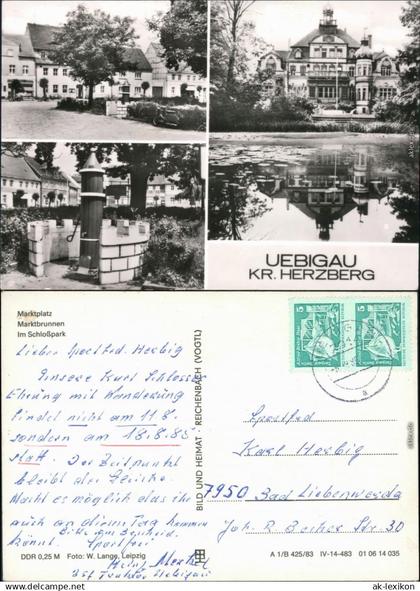 UEBIGAU
KR. HERZBERG
Marktplatz
Marktbrunnen
Im Schloßpark
Lieber Sportfrd. Herbig
Unsere Karl Schlosser
Ehrung mit Wanderung
findet nicht am 11.8.
sondern am 18.8.85
statt. Der Zeitpunkt
bleibt der Gleiche.
Macht es möglich das ihr
auch an diesem Tag kommen
könnt. Bitte um Bescheid.
Sportfrei
Heinz
DDR 0,25 M Foto: W. Lange, Leipzig
BILD UND HEIMAT REICHENBACH (VOGTL)
5 5
Sportfrd
Karl Herbig
7950 Bad Liebenwerda
Joh. R. Becher Str. 30
A 1/B 425/83 IV-14-483 01 06 14 035
www.ansichtskarten-lexikon.de - ak-lexikon.de